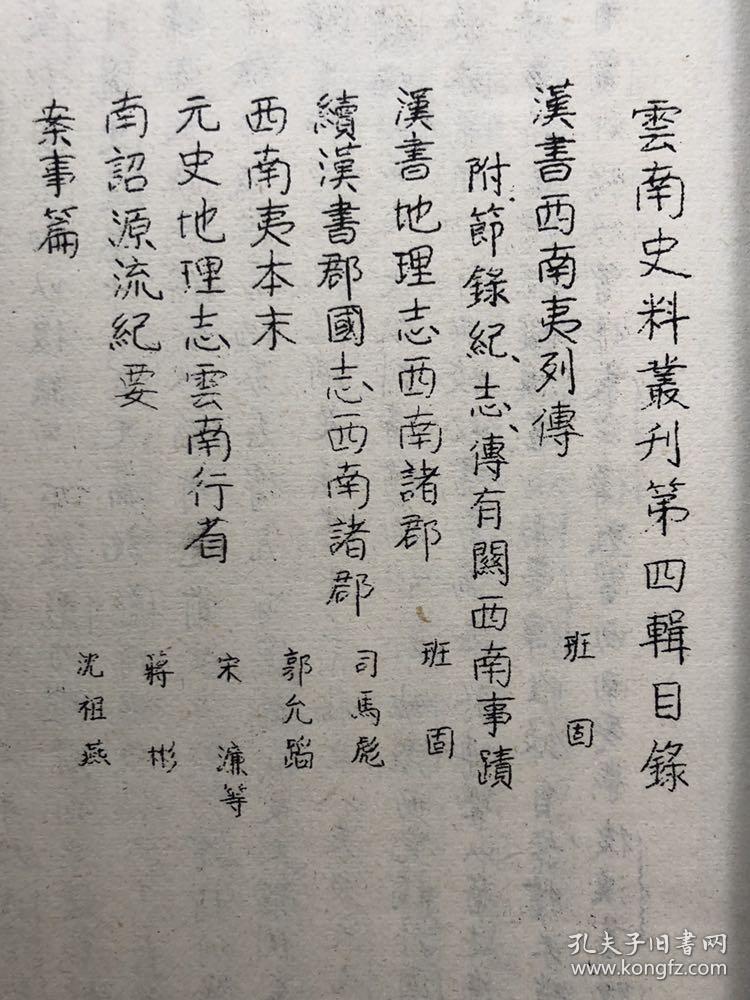 雲南史料叢刊第四輯目錄
漢書西南夷列傳 班固
附、節錄紀、志、傳有關西南事蹟
漢書地理志西南諸郡 班固
續漢書郡國志西南諸郡 司馬彪
西南夷本末 郭允蹈
元史地理志雲南行省 宋濂等
南詔源流紀要 蔣彬
案事篇 沈祖燕
孔夫子旧書网
www.kongfz.com